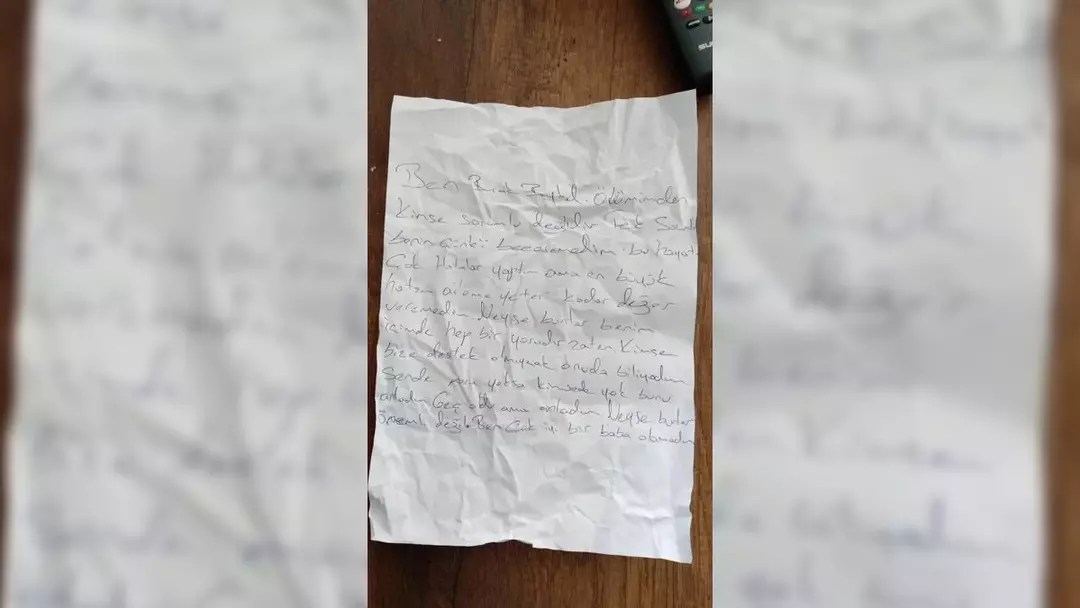 SU
Ben Burak Baytal. Ölümümden
kimse sorumlu değildir tek
benim Çünkü beceremedim bu hayat
Çok Hatalar yaptım ama en büyük
hatam aileme yeter kadar değer
veremedim Neyse bunlar benim
içimde hep bir yaradır zaten Kimse
bize destek olmıycak onuda biliyodum
Sende para yoksa kimsede yok bunu
anladım Geç oldu ama anladım Neyse bunlar
önemli değil. Ben Çok iyi bir baba olamadım